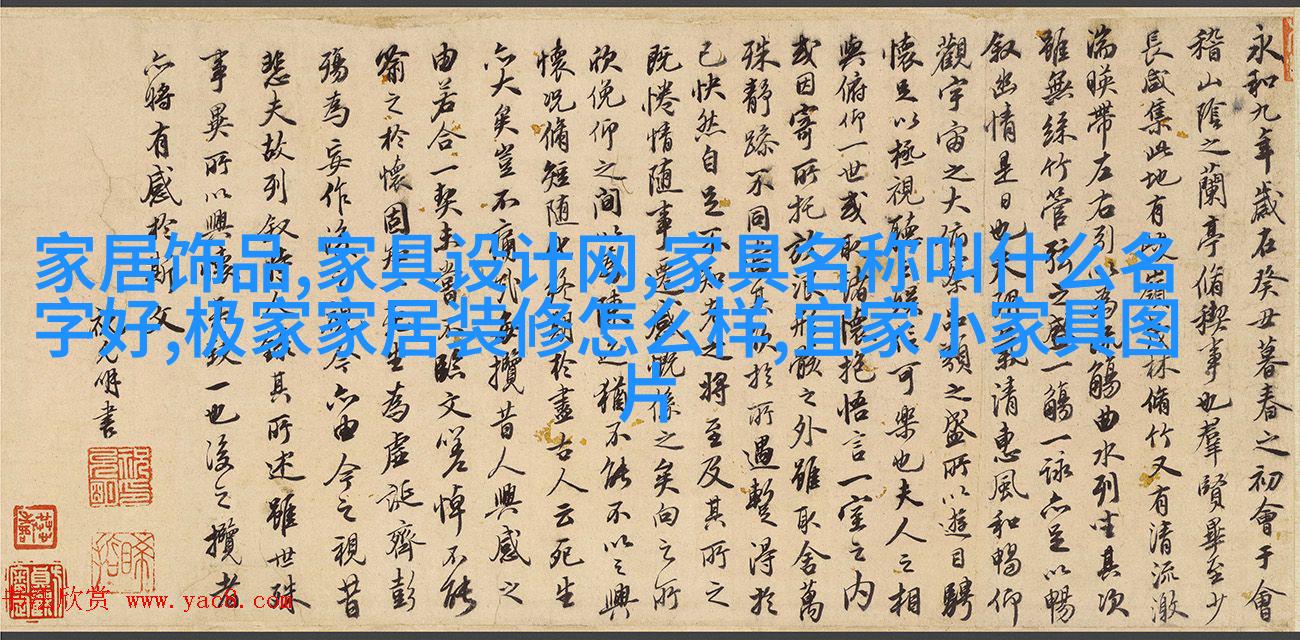 永和九年歲在癸丑暮春之初會于會
稽山陰之蘭亭脩稧事也羣賢畢至少
長咸集此地有
林脩竹又有清流激
湍暎帶左右引以為
觴曲水列坐其次
雖無絲竹管弦之盛一觴一詠亦足以暢
叙幽情是日也天朗氣清惠風和暢仰
觀宇宙之大俯
之盛所以遊目騁
懷足以極視聽
可樂也夫人之相
與俯仰一世或取諸懷抱悟言一室之內
或因寄所托放浪形骸之外雖取舍萬
殊靜躁不同
於所遇蹔得於
己快然自足不知老之將至及其所之
既惓情隨事遷感慨係之矣向之所
欣俛仰之間
猶不能不以之興
懷況脩短隨
於盡古人云死生
亦大矣豈不痛
攬昔人興感之
由若合一契未嘗不臨文嗟悼不能
喻之於懷固
生為虛誕齊彭
殤為妄作
今亦由今之視昔
悲夫故列叙
其所述雖世殊
事異所以興懷
致一也後之攬者
亦將有感於斯文
明書
家居饰品,家具设计网,家具名称叫什么名
字好,极家家居装修怎么样,宜家小家具图
片
欣赏 www.yac8.com